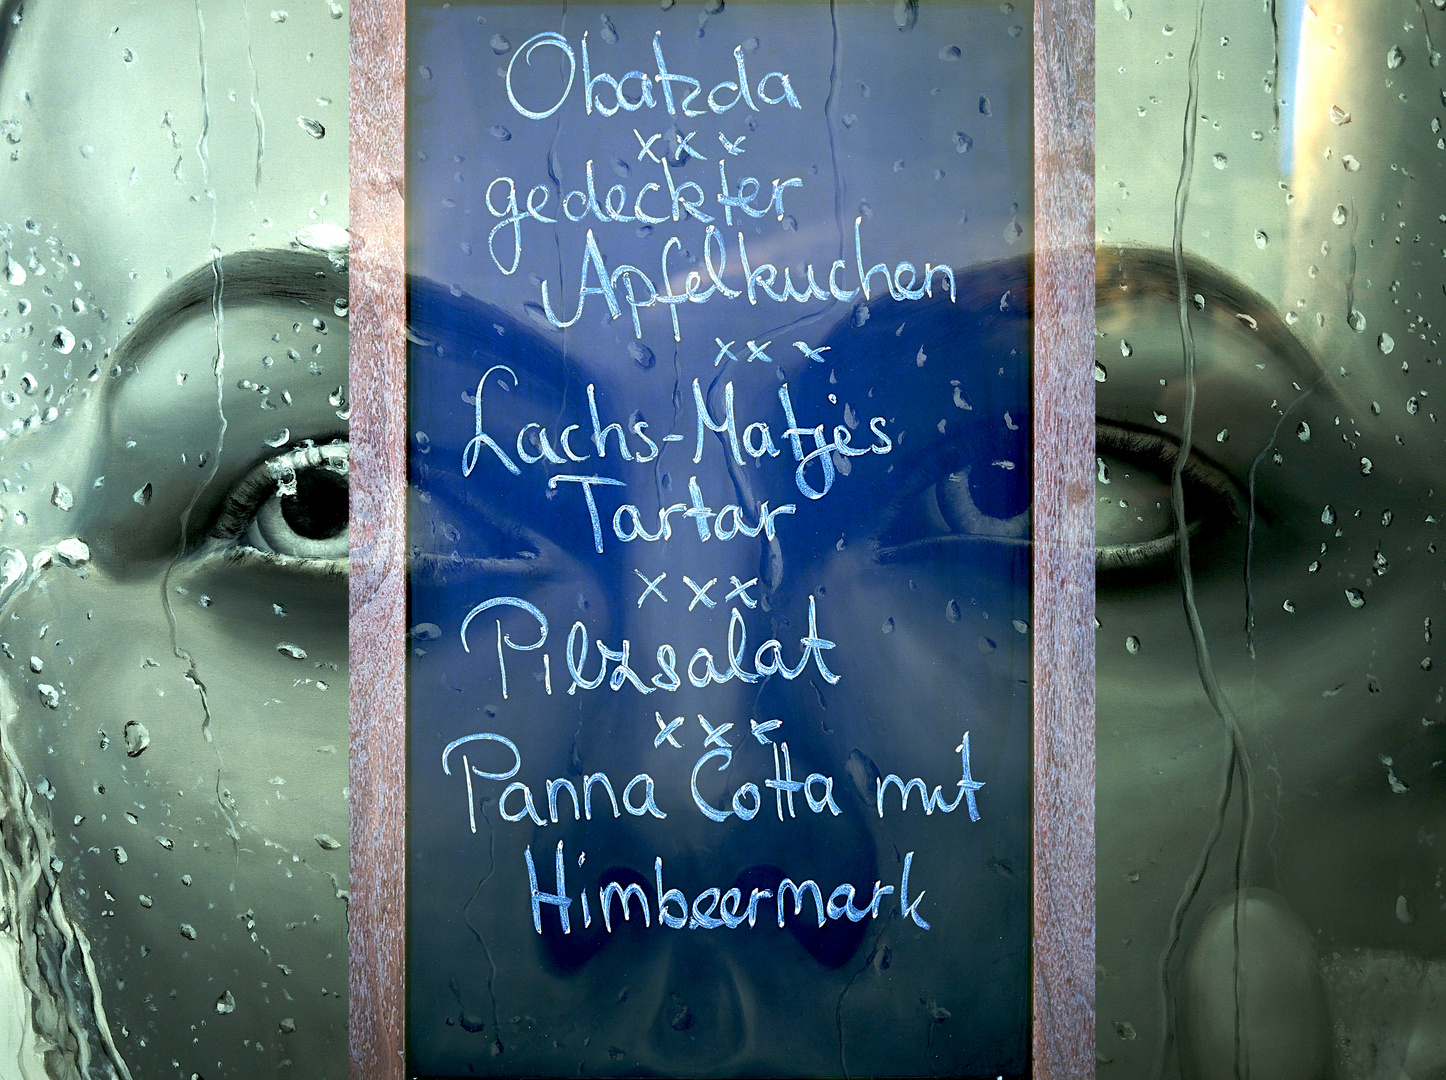 Obatzda
xxx
gedeckter
Apfelkuchen
xxx
Lachs-Matjes
Tartar
xxx
Pilzsalat
xxx
Panna Cotta mit
Himbeermark